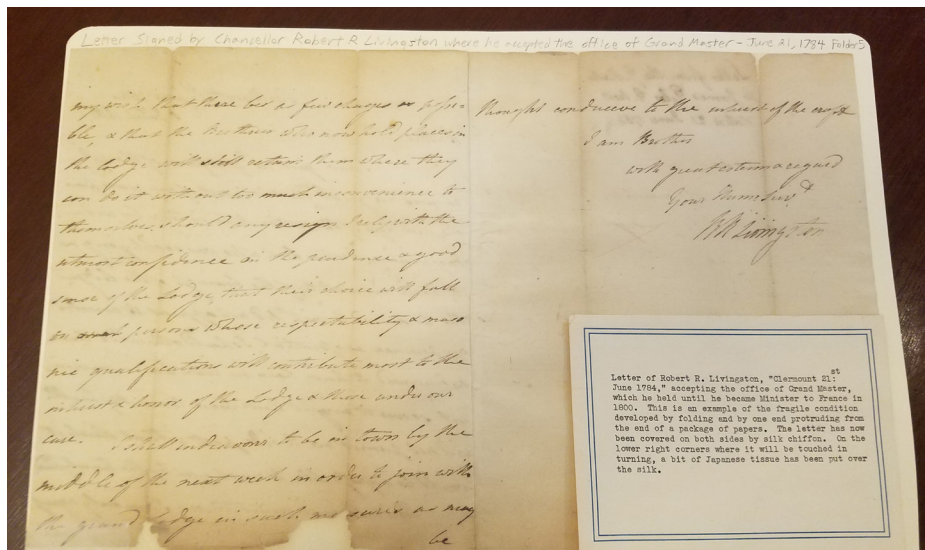 Letter Signed by Chancellor Robert R Livingston where he accepted the office of Grand Master - June 21, 1784 Folder 5
my wish that there be as few changes as possi-
ble, & that the Brethren who now hold places in
the Lodge will still retain them where they
can do it without too much inconvenience to
themselves, should any resign I rely with the
utmost confidence on the prudence & good
sense of the Lodge, that their choice will fall
on persons whose respectability & maso
nic qualifications will contribute most to the
interest & honor of the Lodge & those under our
care. I shall endeavour to be in town by the
middle of the next week in order to join with
the grand Lodge in such measures as may
be
thought conducive to the interest of the craft
I am Brother
with great esteem & regard
Your Hum: Serv.t
RR Livingston
Letter of Robert R. Livingston, "Clermount 21:st
June 1784," accepting the office of Grand Master,
which he held until he became Minister to France in
1800. This is an example of the fragile condition
developed by folding and by one end protruding from
the end of a package of papers. The letter has now
been covered on both sides by silk chiffon. On the
lower right corners where it will be touched in
turning, a bit of Japanese tissue has been put over
the silk.